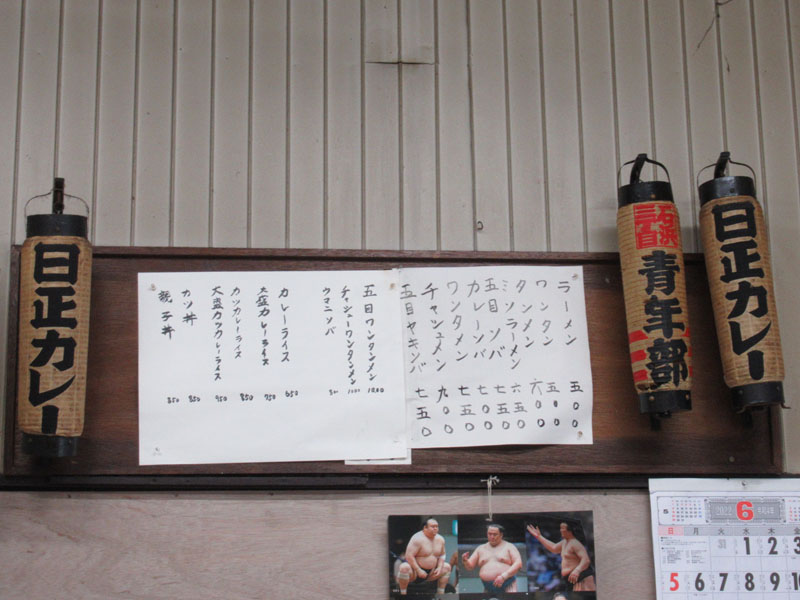 日正カレー
青年部
日正カレー
ラーメン 五00
ワンタン 五00
タンメン 六00
ミソラーメン 六五0
五目ソバ 七五0
カレーソバ 七五0
ワンタメン 七00
チャシュメン 九00
五目ヤキソバ 七五0
五目ワンタンメン 1000
チャシューワンタンメン 1000
ウマニソバ
カレーライス 650
大盛カレーライス
カツカレーライス 850
大盛カツカレーライス 950
カツ丼 850
親子丼 850
2022 6
日 月 火 水 木 金
31 1 2 3
5 6 7 8 9 10